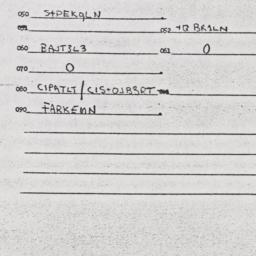 050 S+DEKQLN
051 052 +Q BR3LN
060 BAJT3L3 061 0
070 0
080 C1PATLT/C1S+OJB3RT
090 FARKEMN